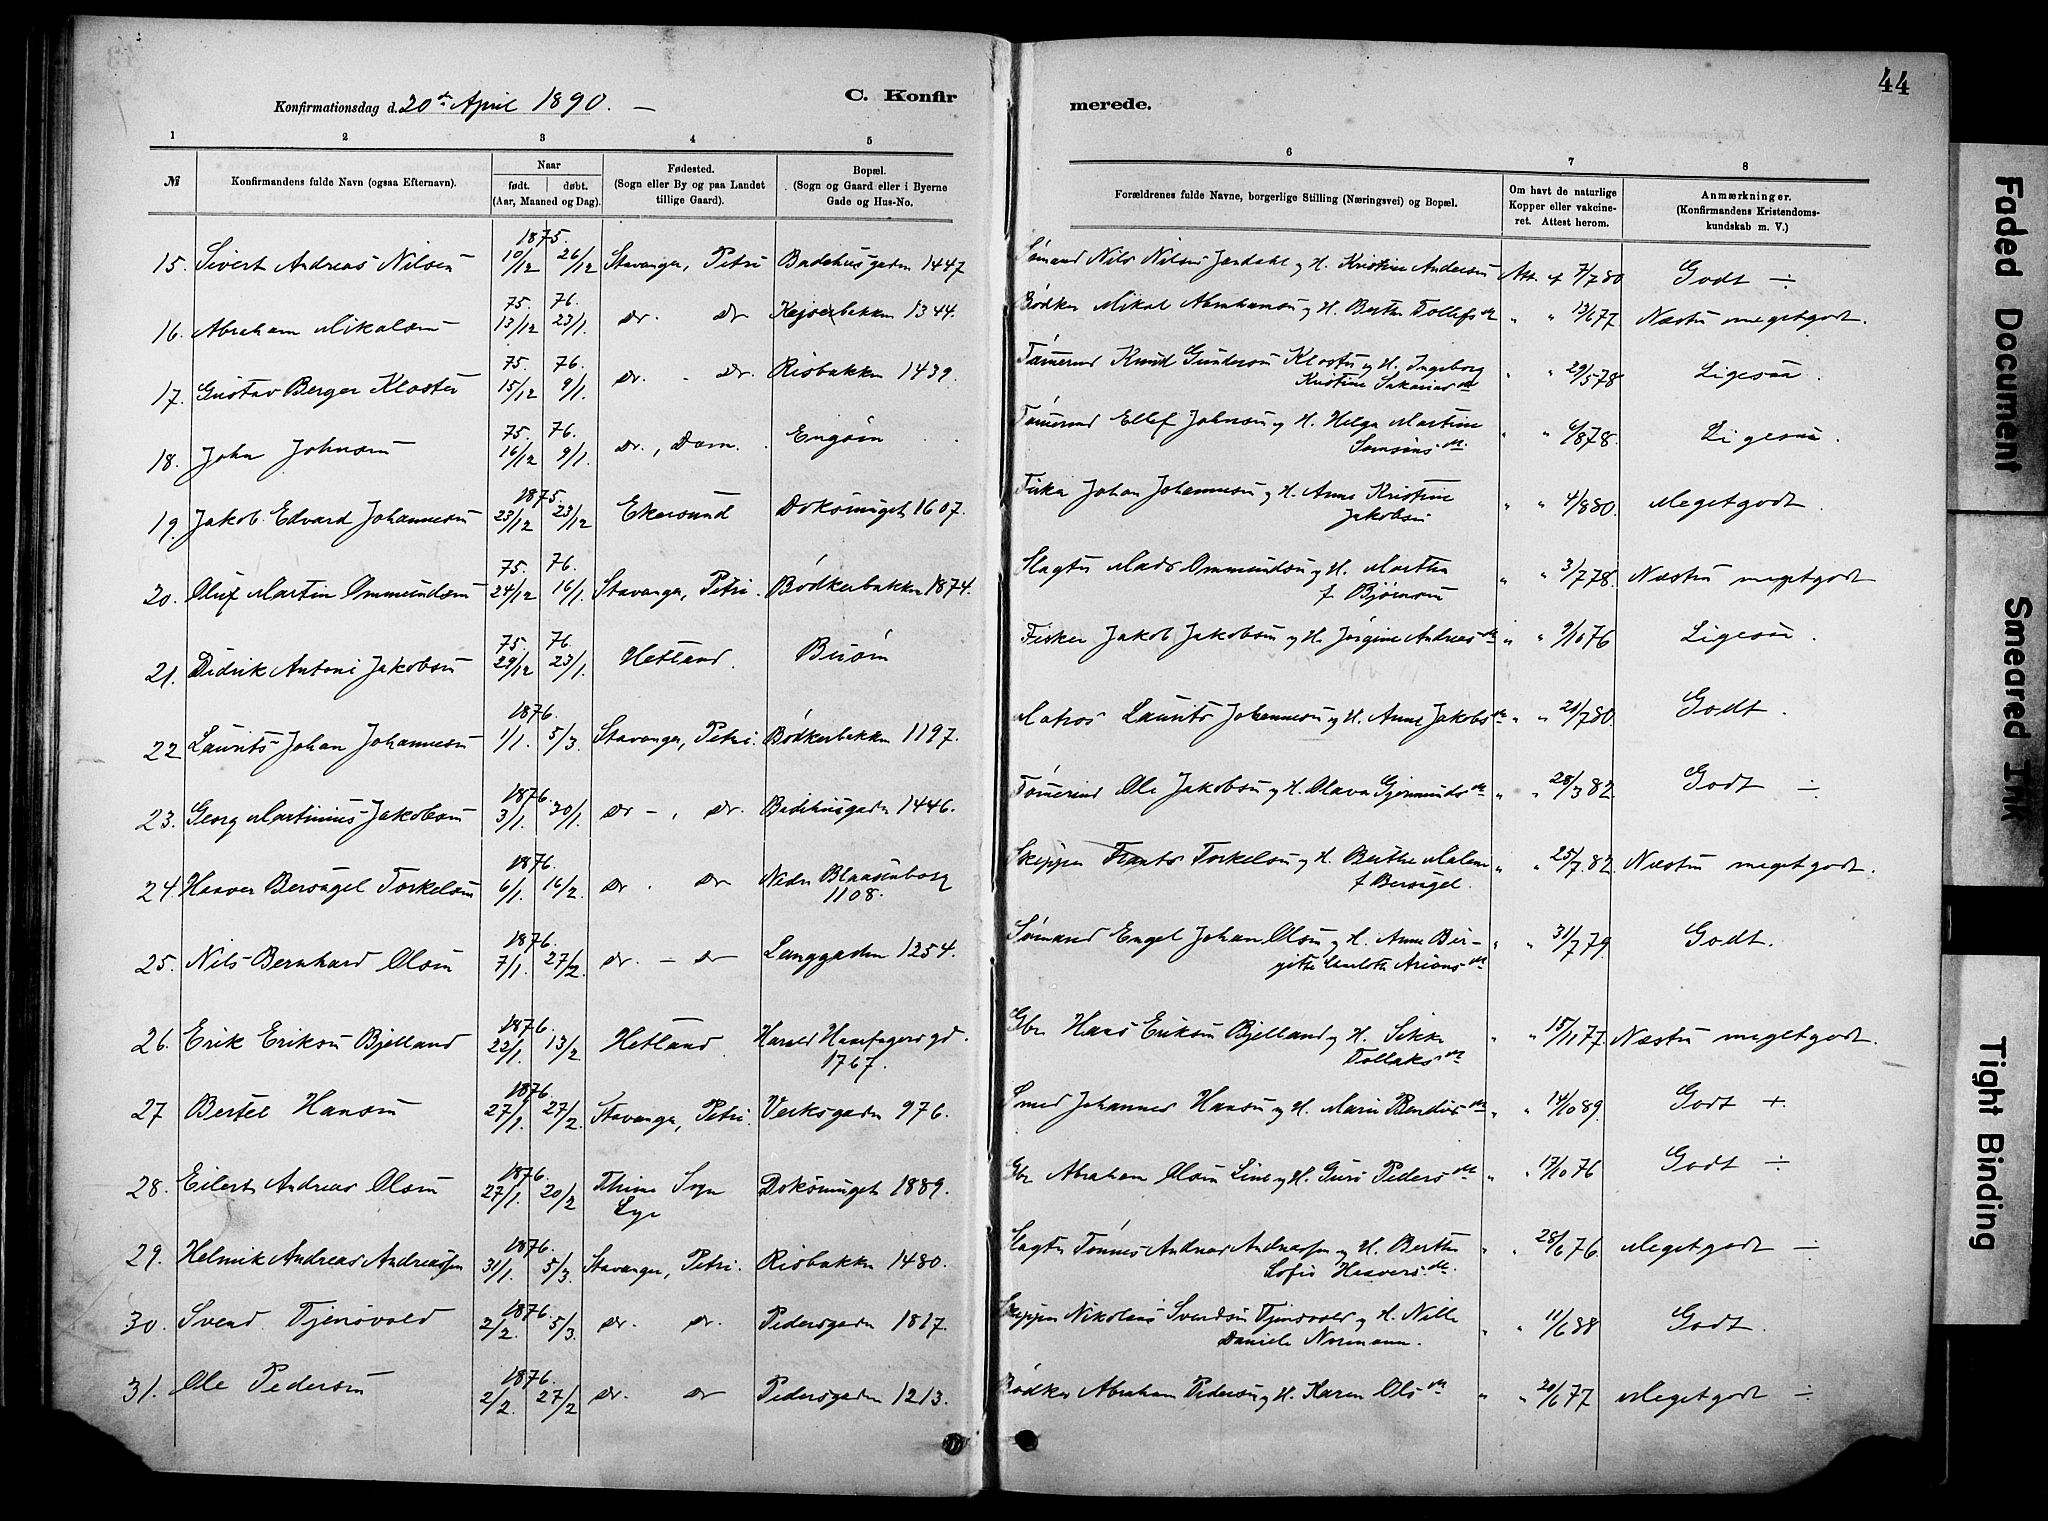 44
Konfirmationsdag d. 20de April 1890. —
C. Konfir
merede.
1 2 3 4 5 6 7 8
№
Konfirmandens fulde Navn (ogsaa Efternavn).
Naar
født. døbt.
(Aar, Maaned og Dag).
Fødested.
(Sogn eller By og paa Landet
tillige Gaard).
Bopæl.
(Sogn og Gaard eller i Byerne
Gade og Hus-No.
Forældrenes fulde Navne, borgerlige Stilling (Næringsvei) og Bopæl.
Om havt de naturlige
Kopper eller vakcine-
ret. Attest herom.
Anmærkninger.
(Konfirmandens Kristendoms-
kundskab m. V.)
1875.
15. Sivert Andreas Nilsen 10/12 26/12 Stavanger, Petri Badehusgaden 1447 Sømand Nils Nilsen Jændahl og H. Kristine Andersen Att. f 7/7 80 Godt ÷
75. 76.
16. Abraham Mikalsen 13/12 23/1. do. do Kejserbakken 1344. Bødker Mikal Abrahamsen og H. Berthe Tollefsdtr " " 13/6 77 Næsten megetgodt.
75. 76.
17. Gustav Berger Kloster 15/12 9/1. do. - do. Risbakken 1439. Tømmermd Knud Gundersen Kloster og H. Ingeborg " " 29/5 78 Ligesaa.
Kristine Sakariasdtr
75. 76.
18. John Johnsen 16/12 9/1. do., Dom. Engøen Tømmermd Ellef Johnsen og H. Helga Martine " " 6/8 78. Ligesaa.
Samsonsdtr.
1875.
19. Jakob Edvard Johannesen 23/12 23/12 Ekersund Doksmuget 1607. Fisker Johan Johannesen og H. Anne Kristine " " 4/8 80. Megetgodt.
Jakobsen
75. 76.
20. Oluf Martin Ommundsen 24/12 16/1. Stavanger, Petri. Bødkerbakken 1874. Slagter Mads Ommundsen og H. Marthe " " 3/7 78. Næsten megetgodt
f. Bjørnsen
75. 76.
21. Didrik Antoni Jakobsen 29/12 23/1. Hetland. Buøen Fisker Jakob Jakobsen og H. Jørgine Andreasdtr " " 9/10 76 Ligesaa.
1876.
22 Laurits Johan Johannesen 1/1. 5/3. Stavanger, Petri. Bødkerbakken 1197. Matros Laurits Johannesen og H. Anne Jakobsdtr " " 21/7 80. Godt.
1876.
23. Georg Martinius Jakobsen 3/1. 30/1. do -, do. Badehusgaden 1446. Tømmermd Ole Jakobsen og H. Olava Gjermundsdtr " " 28/3 82. Godt ÷
1876.
24. Haaver Bersagel Torkelsen 6/1. 16/2. do. do Nedre Blaasenborg Skipper Frants Torkelsen og H. Berthe Malene " " 25/7. 82. Næsten megetgodt.
1108. f Bersagel.
1876.
25. Nils Bernhard Olsen 7/1. 27/2. do. - do Langgaden 1254. Sømand Engel Johan Olsen og H. Anne Bir- " " 31/7 79. Godt.
gitte Charlotte Arionsdtr
1876.
26. Erik Eriksen Bjelland 22/1. 13/2 Hetland. Harald Haarfagersgd. Gbr Hans Eriksen Bjelland og H. Sikke " " 15/11 77. Næsten megetgodt.
1767. Tollaksdtr
1876.
27 Bertel Hansen 27/1. 27/2. Stavanger, Petri. Verksgaden 976. Smed Johannes Hansen og H. Marie Bendiksdtr " " 14/10 89. Godt +.
1876.
28. Eilert Andreas Olsen 27/1. 20/2 Thime Sogn Doksmuget 1889. Gbr Abraham Olsen Line og H. Guri Pedersdtr " " 17/10 76 Godt ÷
Lye
1876.
29. Helmik Andreas Andreassen 31/1. 5/3. Stavanger, Petri. Risbakken 1480. Slagter Tønnes Andreas Andreassen og H. Berthe " " 28/6 76. Megetgodt ÷
Sofie Haaversdtr.
1876.
30. Svend Tjensvold 2/2. 5/3. do. do. Pedersgaden 1817. Skipper Nikolaus Svendsen Tjensvold og H. Nille " " 11/6 88 Godt.
Daniele Normann.
1876.
31. Ole Pedersen 2/2. 27/2 do. do Pedersgaden 1213. Bødker Abraham Pedersen og H. Karen Olsdtr " " 20/6 77 Megetgodt ÷
Faded Document
Smeared Ink
Tight Binding